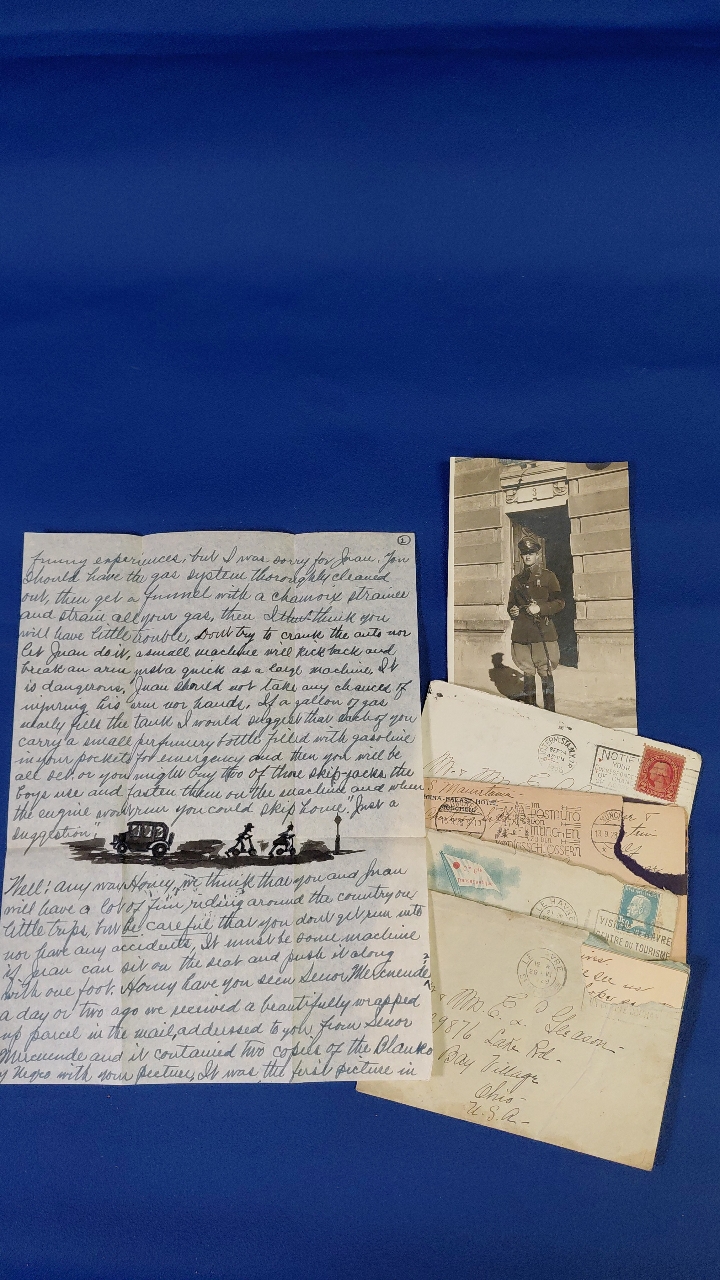 2
funny experiences, but I was sorry for Juan. You
should have the gas system thoroughly cleaned
out, then get a funnel with a chamois strainer
and strain all your gas, then I think you
will have little trouble, Dont try to crank the auto nor
let Juan do it, a small machine will kick back and
break an arm just a quick as a large machine. It
is dangerous, Juan should not take any chances of
injuring his arm nor hands. If a gallon of gas
nearly fills the tank I would suggest that each of you
carry a small perfumery bottle filled with gasoline
in your pockets for emergency and then you will be
all set, or you might buy two of those skip-jacks the
boys use and fasten them on the machine and when
the engine wont run you could skip home. "Just a
suggestion"
Well! any way Honey, we think that you and Juan
will have a lot of fun riding around the country on
little trips, but be careful that you dont get run into
nor have any accidents, It must be some machine
if Juan can sit on the seat and push it along
with one foot. Honey have you seen Senor Merenende
a day or two ago we received a beautifully wrapped
up parcel in the mail, addressed to you from Senor
and it contained two copies of the Blanko
y Negro with your picture, It was the first picture in
3
NOTIFY
YOUR
Mr & Mrs E
MÜNCHEN
im
HOFBRÄU
MÜNCHEN
LE HAVRE
VISITEZ LE HAVRE
CENTRE DU TOURISME
LE HAVRE
Mr. E. D. Gleason
29876 Lake Rd-
Bay Village
Ohio-
U.S.A-